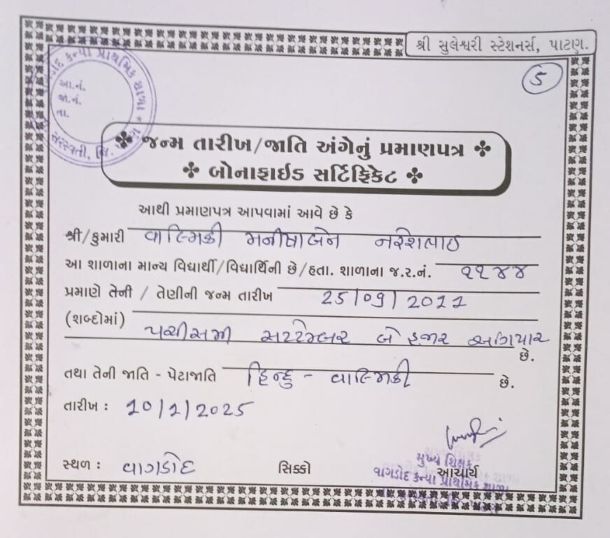 શ્રી સુલેશ્વરી સ્ટેશનર્સ, પાટણ.
5
કન્યા પ્રાથમિક શાળા
આ.નં.
જા.નં.
તા.
સરસ્વતી, જિ.
જન્મ તારીખ/જાતિ અંગેનું પ્રમાણપત્ર
બોનાફાઈડ સર્ટિફિકેટ
આથી પ્રમાણપત્ર આપવામાં આવે છે કે
શ્રી/કુમારી વાલ્મિકી મનીષાબેન નરેશભાઈ
આ શાળાના માન્ય વિદ્યાર્થી/વિદ્યાર્થિની છે/હતા. શાળાના જ.ર.નં. ૨૧૪૪
પ્રમાણે તેની / તેણીની જન્મ તારીખ 25/09/2011
(શબ્દોમાં) પચીસમી સપ્ટેમ્બર બે હજાર અગિયાર
છે.
તથા તેની જાતિ - પેટાજાતિ હિન્દુ - વાલ્મિકી છે.
તારીખ : 10/1/2025
સ્થળ : વાગડોદ સિક્કો આચાર્ય
મુખ્ય શિક્ષક
વાગડોદ કન્યા પ્રાથમિક શાળા